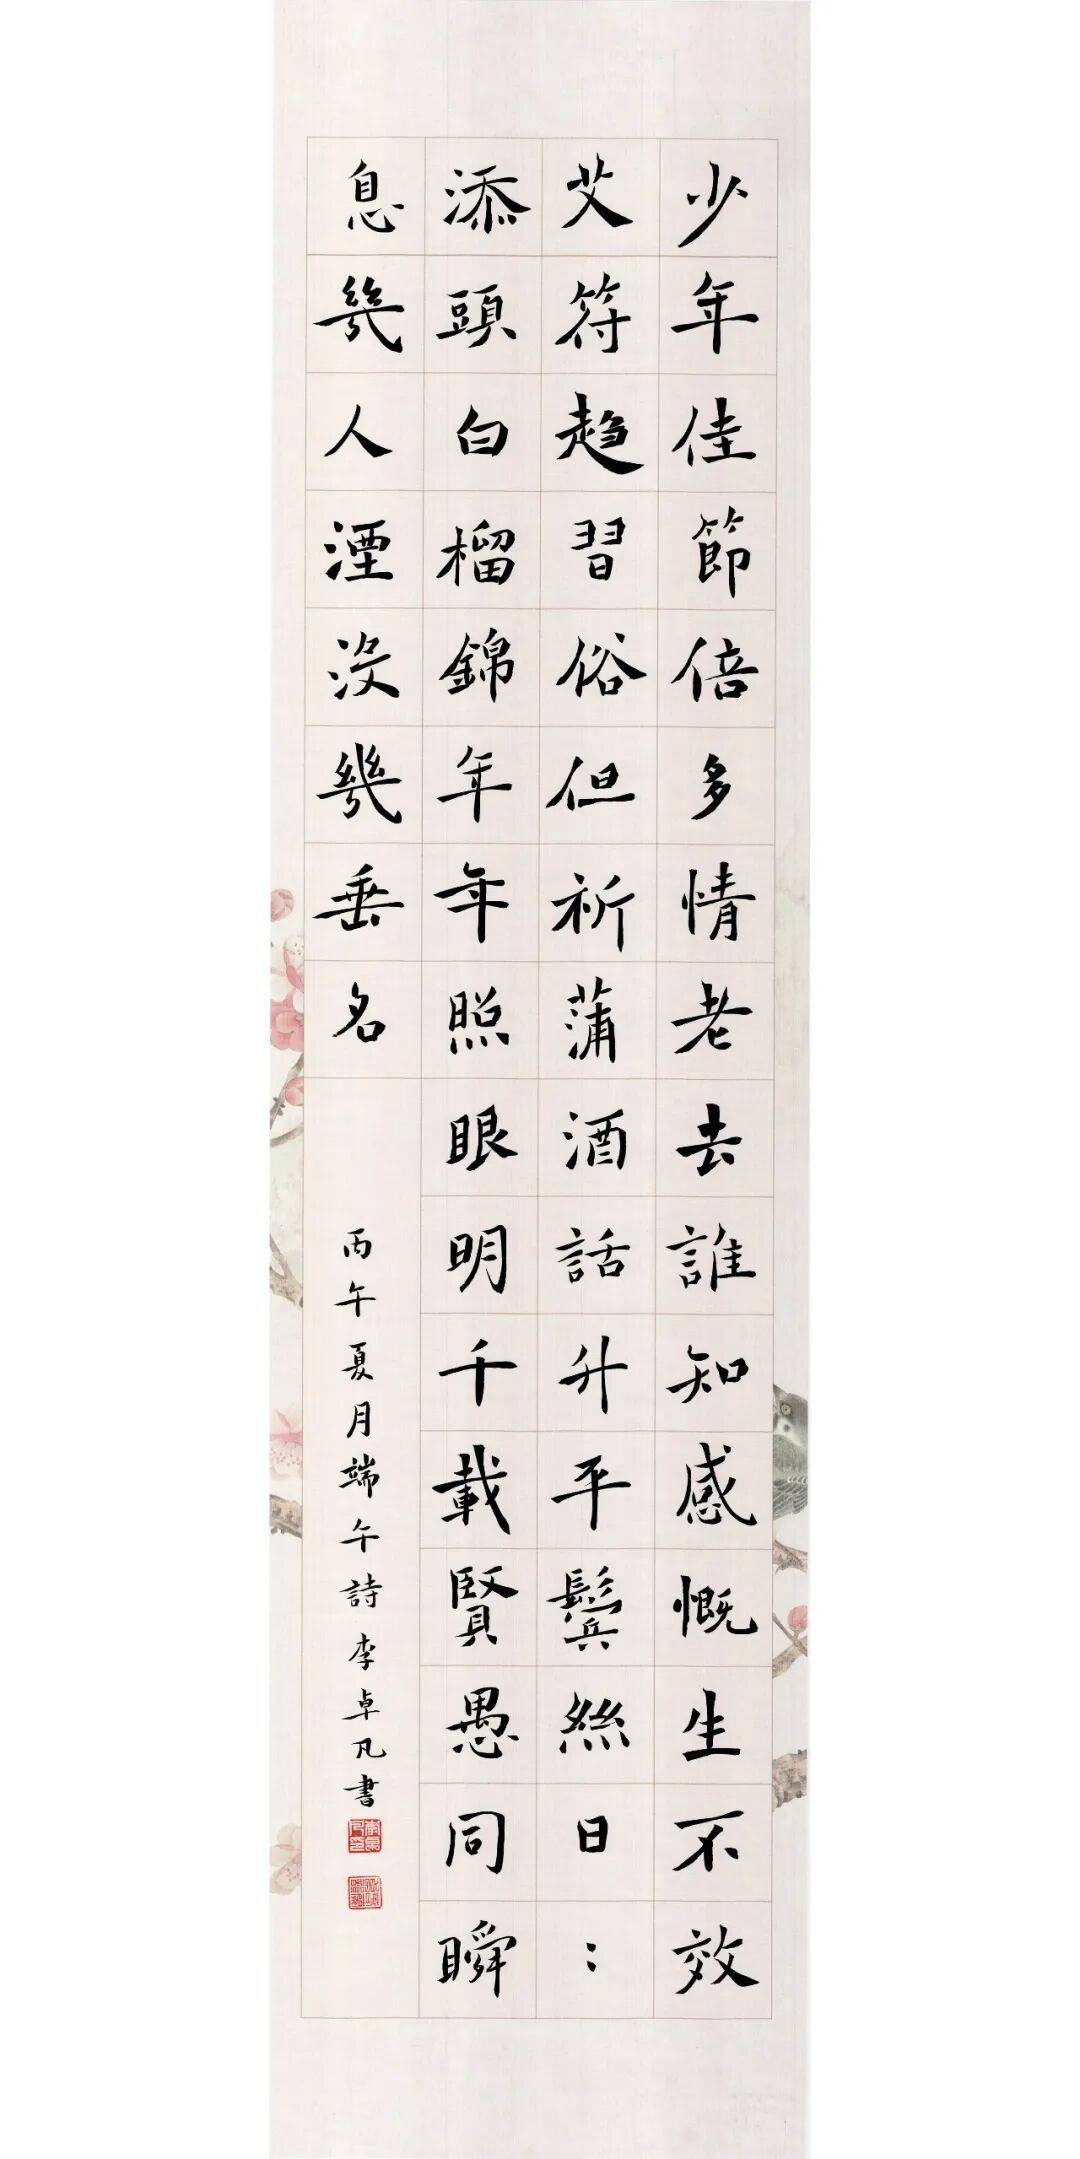 少年佳節倍多情老去誰知感慨生不效
艾符趋習俗但祈蒲酒話升平鬂絲日：
添頭白榴錦年年照眼明千載賢愚同瞬
息幾人湮没幾垂名
丙午夏月端午詩 李卓凡書